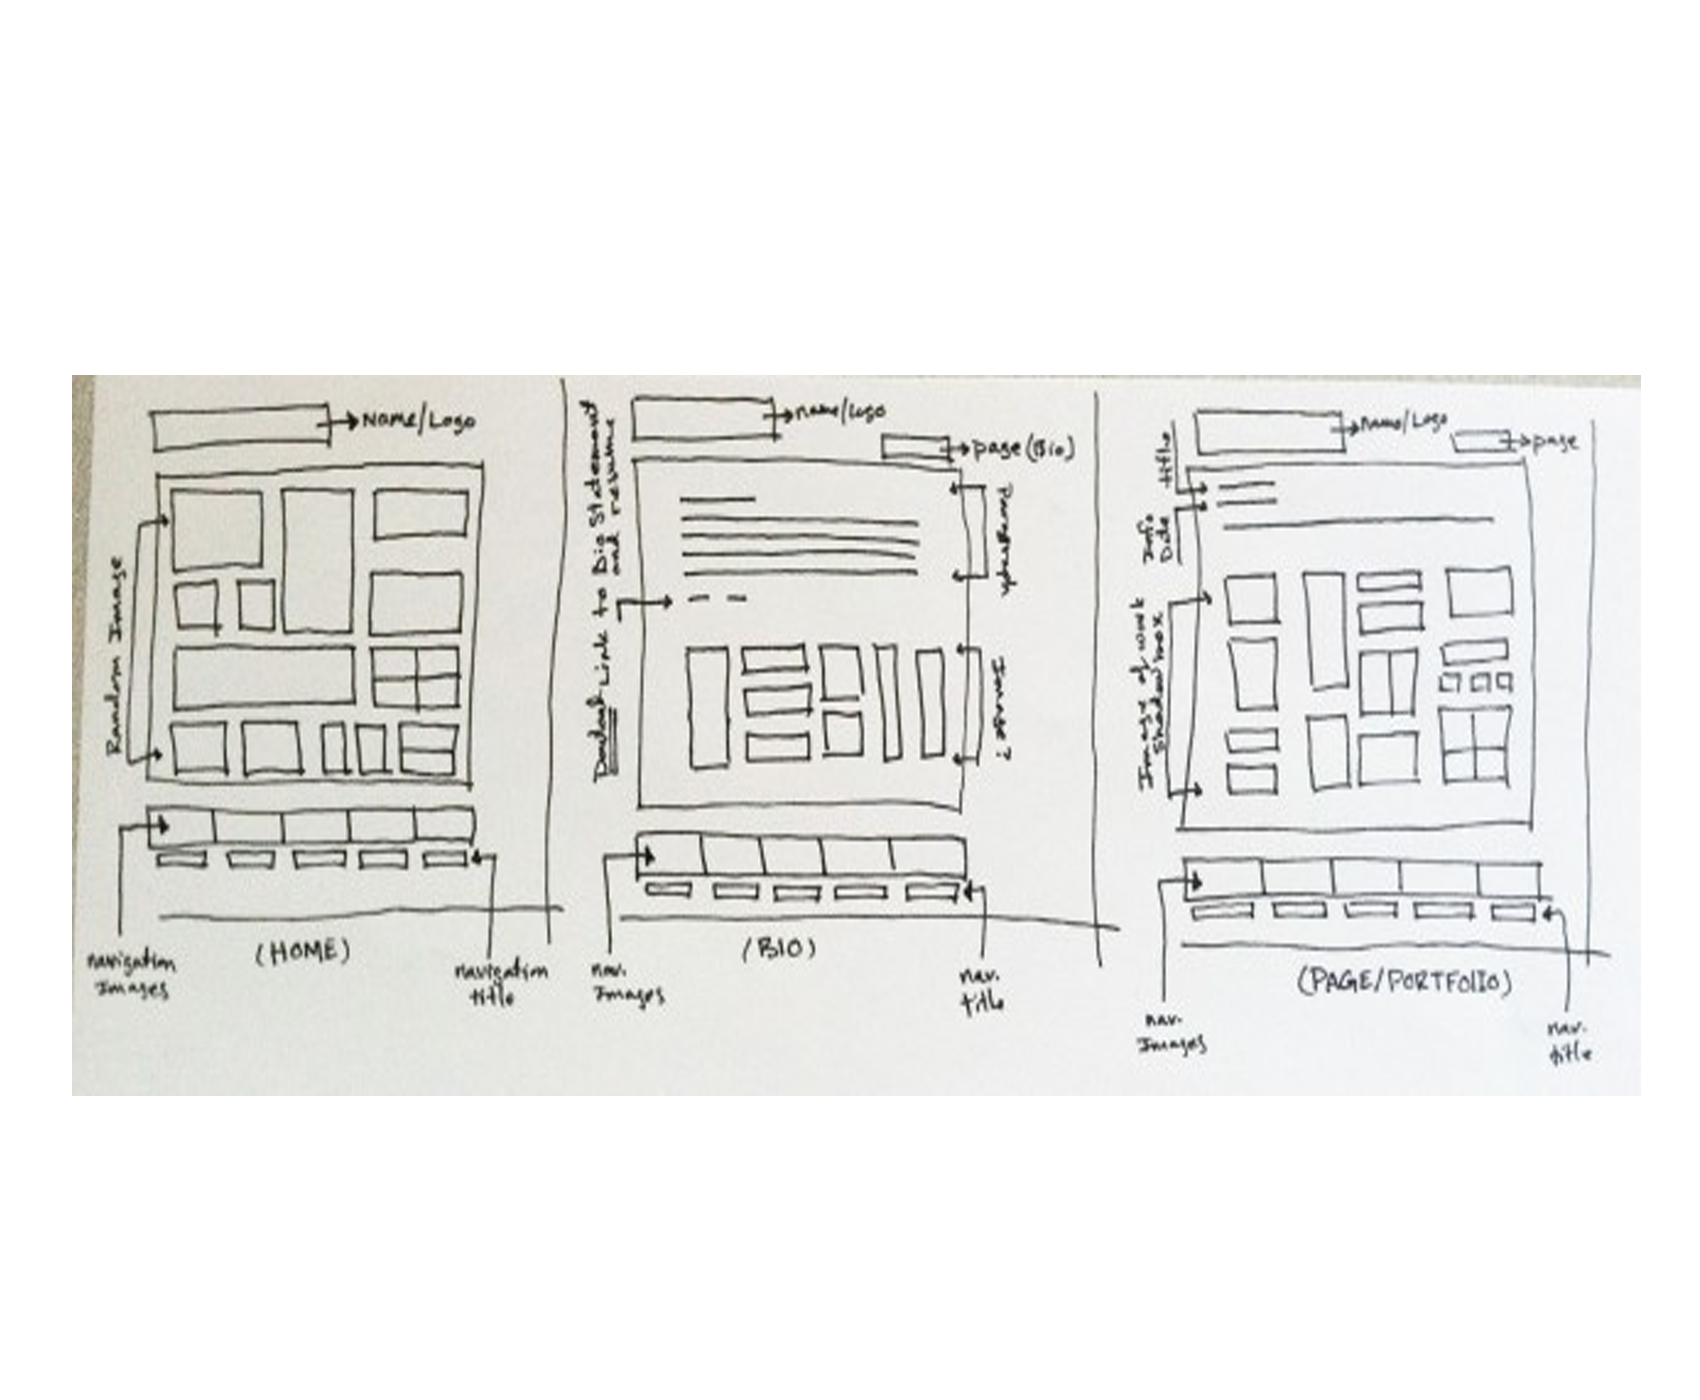 Name/Logo
Random Image
navigation
Images
(HOME)
navigation
title
name/logo
page (Bio)
Link to Bio Statement
and resume
Paragraph
Images?
nav.
Images
(BIO)
nav.
title
name/Logo
page
title
Info
Date
Image of work
Shadowbox
nav.
Images
(PAGE/PORTFOLIO)
nav.
title